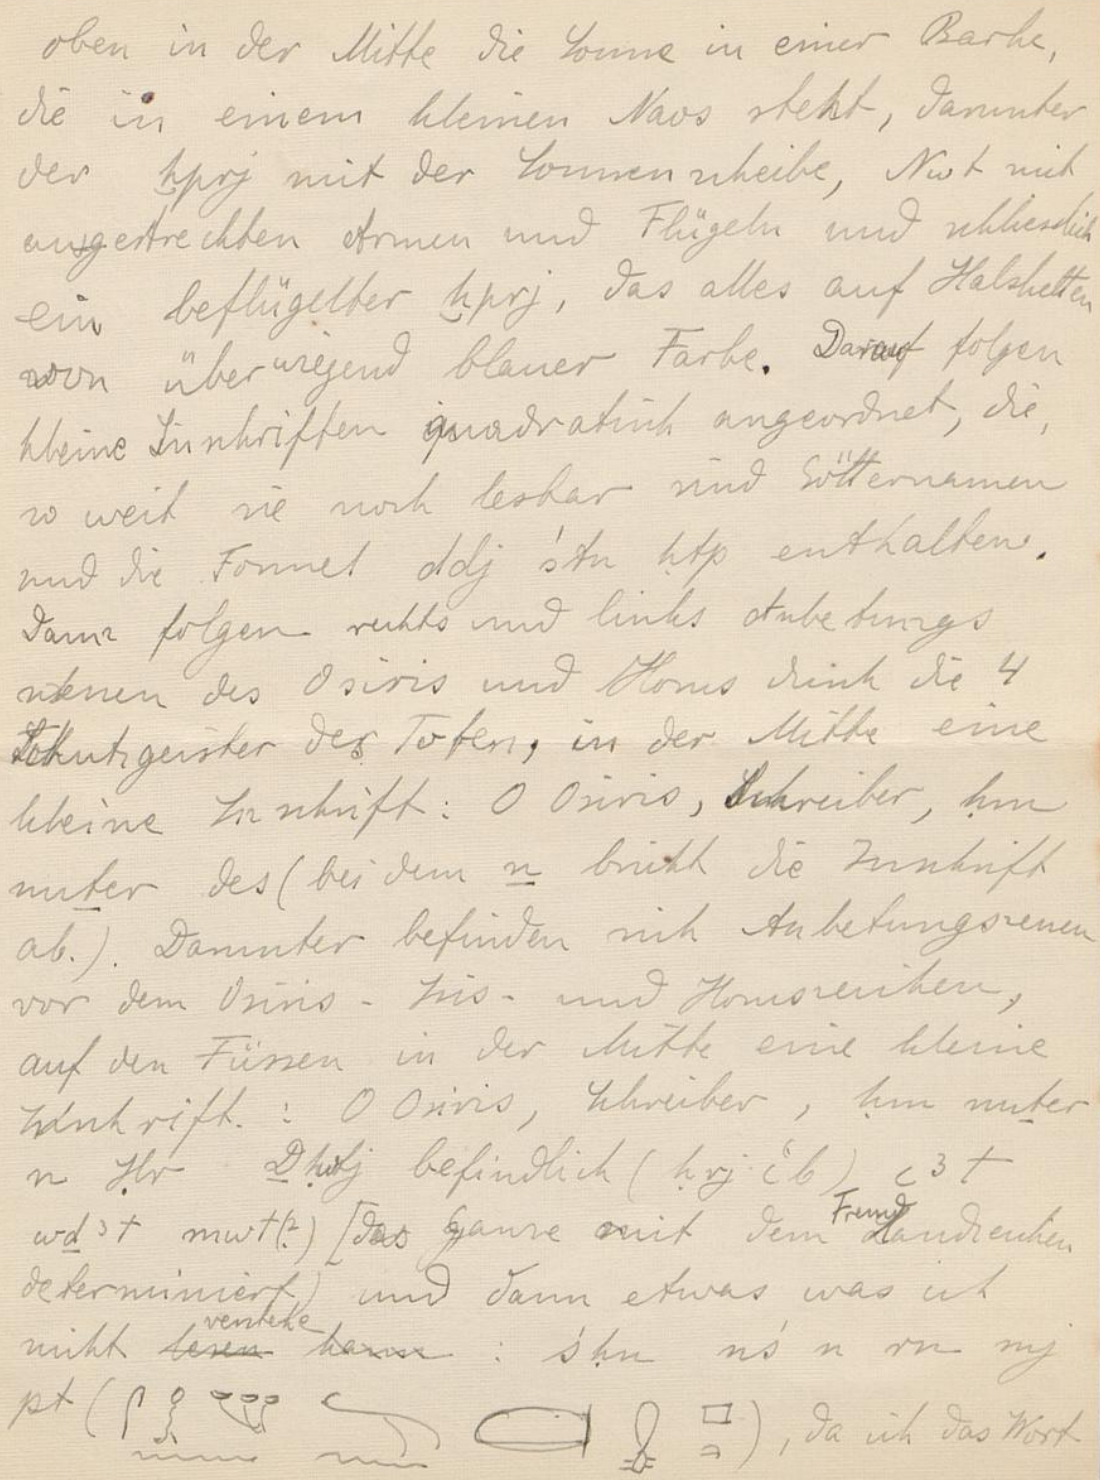 oben in der Mitte die Sonne in einer Barke,
die in einem kleinen Naos steht, darunter
der ḫprj mit der Sonnenscheibe, Nwt mit
ausgestreckten Armen und Flügeln und schliesslich
ein beflügelter ḫprj, das alles auf Halsketten
von überwiegend blauer Farbe. Darauf folgen
kleine Inschriften quadratisch angeordnet, die,
so weit sie noch lesbar sind Götternamen
und die Formel ddj śtn ḥtp enthalten.
Dann folgen rechts und links Anbetungs
scenen des Osiris und Horus durch die 4
Schutzgeister des Toten, in der Mitte eine
kleine Inschrift: O Osiris, Schreiber, ḥm
nuṯer des (bei dem n bricht die Inschrift
ab.). Darunter befinden sich Anbetungscenen
vor dem Osiris- Isis- und Horuszeichen,
auf den Füssen in der Mitte eine kleine
Inschrift. : O Osiris, Schreiber, ḥm nuṯer
n Ḥr Ḏḥwtj befindlich (ḥrj ỉb) c3t
wḏ3t mwt(?) [das Ganze mit dem Fremdlandzeichen
determiniert) und dann etwas was ich
nicht lesen kann verstehe : śḥn nś n rn nj
pt ( ), da ich das Wort